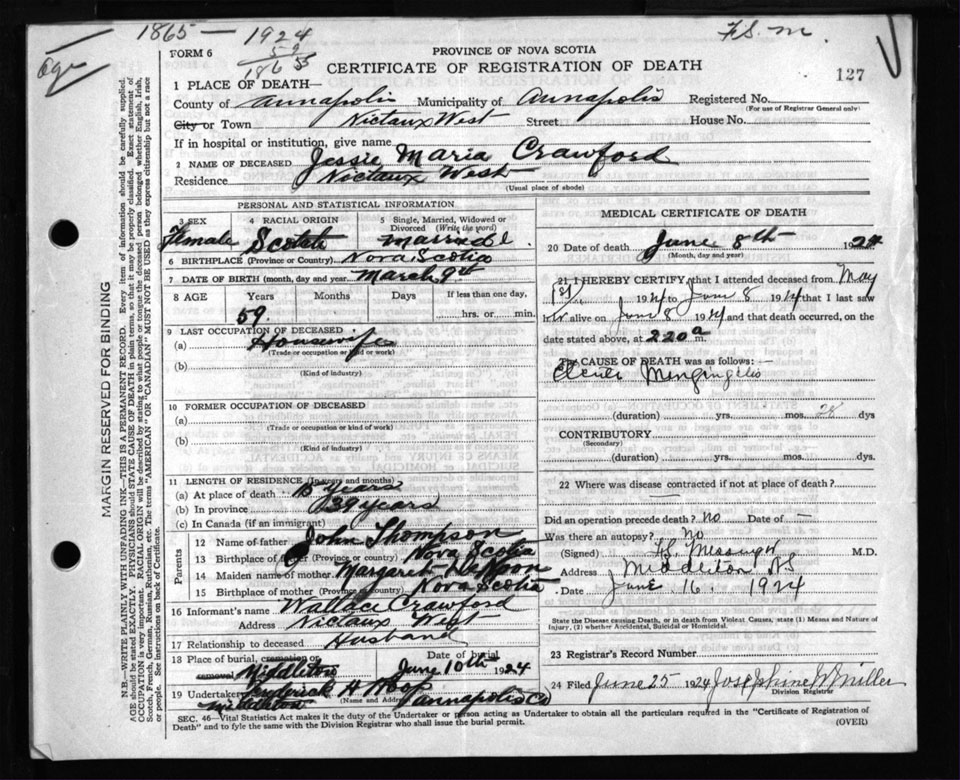 1865 — 1924
59
1865
F.S. M.
Age
FORM 6
PROVINCE OF NOVA SCOTIA
CERTIFICATE OF REGISTRATION OF DEATH
127
1 PLACE OF DEATH—
County of Annapolis Municipality of Annapolis Registered No.
(For use of Registrar General only)
City or Town Nictaux West Street House No.
If in hospital or institution, give name
2 NAME OF DECEASED Jessie Maria Crawford
Residence Nictaux West
(Usual place of abode)
PERSONAL AND STATISTICAL INFORMATION
3 SEX 4 RACIAL ORIGIN 5 Single, Married, Widowed or Divorced (Write the word)
Female Scotch Married
6 BIRTHPLACE (Province or Country) Nova Scotia
7 DATE OF BIRTH (month, day and year) March 9th
8 AGE Years Months Days If less than one day,
59 hrs. or min.
9 LAST OCCUPATION OF DECEASED
(a) Housewife
(Trade or occupation or kind or work)
(b)
(Kind of industry)
10 FORMER OCCUPATION OF DECEASED
(a)
(Trade or occupation or kind of work)
(b)
(Kind of industry)
11 LENGTH OF RESIDENCE (In years and months)
(a) At place of death years
(b) In province 39 years
(c) In Canada (if an immigrant)
Parents
12 Name of father John Thompson
13 Birthplace of father (Province or country) Nova Scotia
14 Maiden name of mother Margaret
15 Birthplace of mother (Province or country) Nova Scotia
16 Informant's name Wallace Crawford
Address Nictaux West
17 Relationship to deceased Husband
18 Place of burial, cremation or removal Middleton Date of burial June 10th 1924
19 Undertaker Frederick H Roop
Middleton (Name and Address) Annapolis Co
MEDICAL CERTIFICATE OF DEATH
20 Date of death June 8th 1924
(Month, day and year)
21 I HEREBY CERTIFY, that I attended deceased from May
1st 1924 to June 8 1924 that I last saw
her alive on June 8 1924 and that death occurred, on
date stated above, at 220 a m.
The CAUSE OF DEATH was as follows: —
(duration) yrs. mos. dys
CONTRIBUTORY
(Secondary)
(duration) yrs. mos. dys.
22 Where was disease contracted if not at place of death?
Did an operation precede death? No Date of —
Was there an autopsy? No
(Signed) M.D.
Address Middleton NS
Date June 16. 1924
State the Disease causing Death, or in death from Violent Causes, state (1) Means and Nature of
Injury, (2) whether Accidental, Suicidal or Homicidal.
23 Registrar's Record Number
24 Filed June 25 1924 Josephine W Miller
Division Registrar
SEC. 46—Vital Statistics Act makes it the duty of the Undertaker or person acting as Undertaker to obtain all the particulars required in the "Certificate of Registration of
Death" and to fyle the same with the Division Registrar who shall issue the burial permit. (OVER)
MARGIN RESERVED FOR BINDING
N.B.—WRITE PLAINLY WITH UNFADING INK—THIS IS A PERMANENT RECORD. Every item of information should be carefully supplied.
AGE should be stated EXACTLY. PHYSICIANS should STATE CAUSE OF DEATH in plain terms, so that it may be properly classified. Exact statement of
OCCUPATION is very important. RACIAL ORIGIN will be described by stating to what people or tongue the deceased person belonged whether English, Irish,
Scotch, French, German, Russian, Ruthenian, etc. The terms "AMERICAN" OR "CANADIAN" MUST NOT BE USED as they express citizenship but not a race
or people. See instructions on back of Certificate.